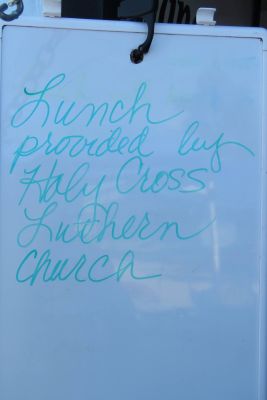 Lunch
provided by
Holy Cross
Luthern
Church